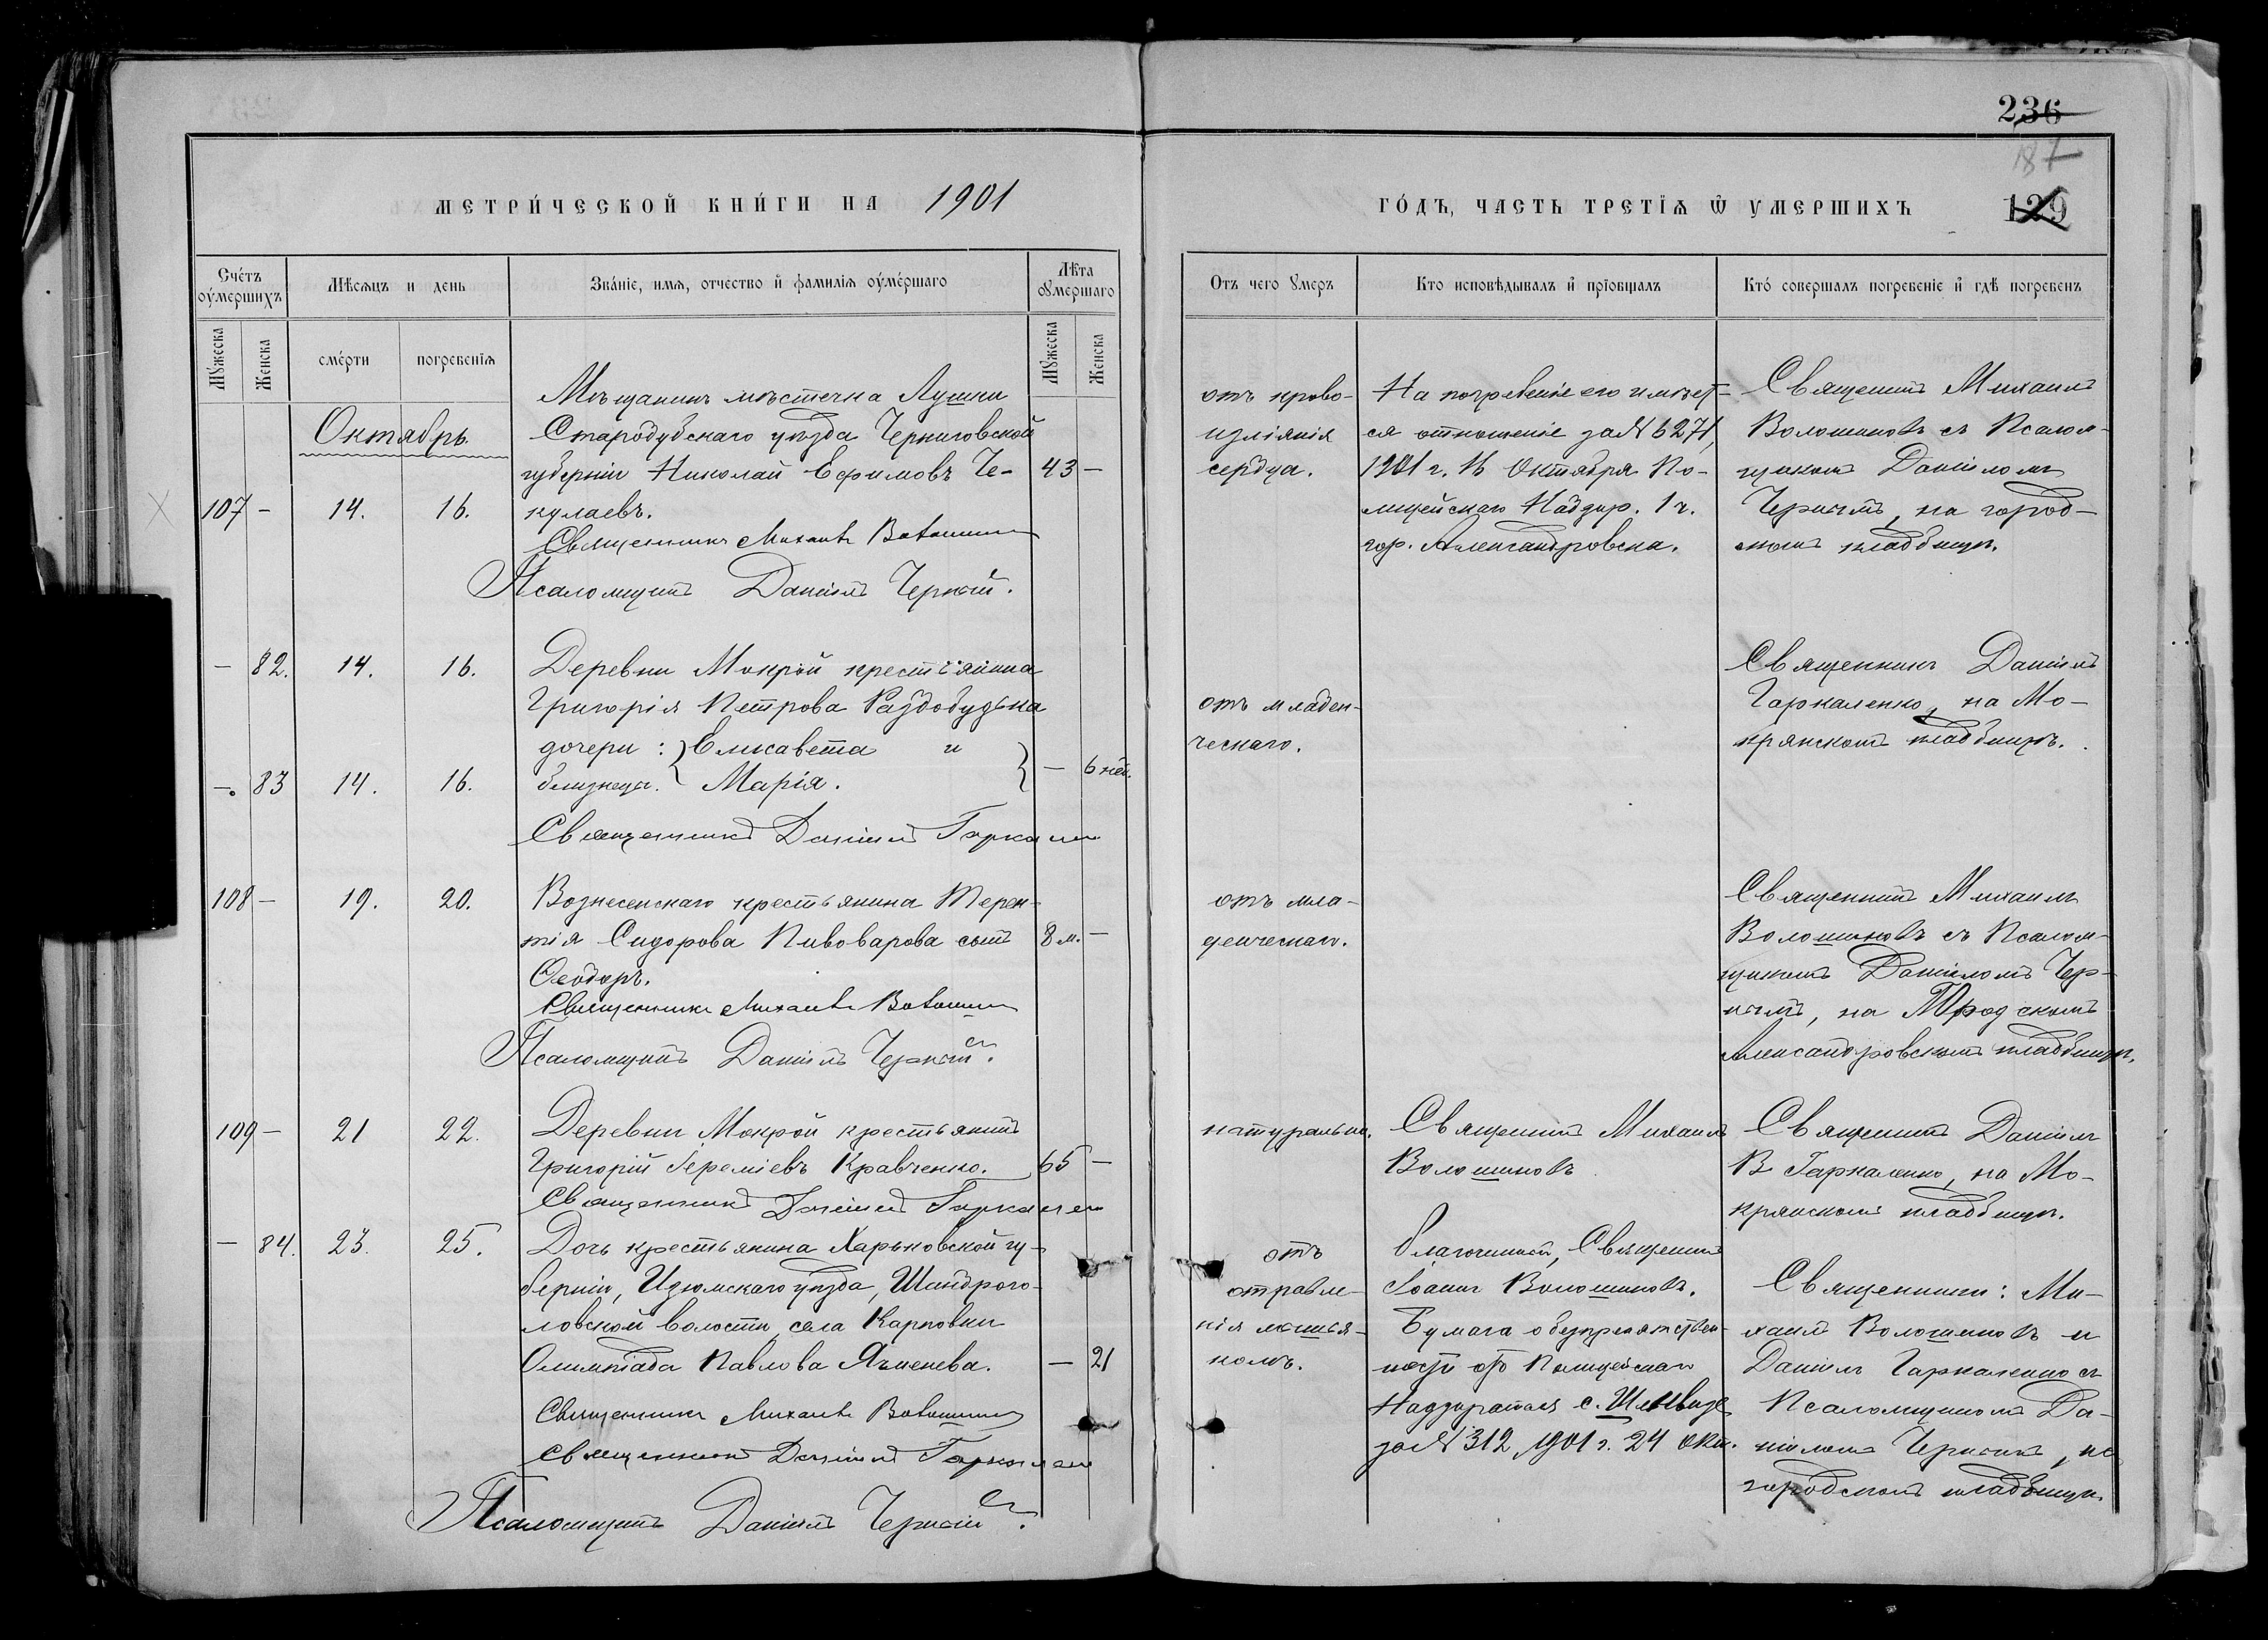 236
187
129
МЕТРИ́ЧЕСКОЙ КНИ́ГИ НА 1901
ГО́ДЪ, ЧАСТЬ ТРЕТІѦ Ѿ УМЕРШИХЪ
Сче́тъ оу҆ме́ршихъ
Мѣсѧцъ и день
Зва́нїе, имѧ, отчество и҆ фамилїѧ оу҆ме́ршаго
Лѣта ꙋмершаго
Отъ чего ꙋмеръ
Кто исповѣдывалъ и҆ прїобщалъ
Кто́ совершалъ погребенїе и҆ гдѣ погребенъ
Мꙋжеска
Женска
сме́рти
погребенїѧ
Мꙋжеска
Женска
Октябрь.
107 - 14. 16.
Мѣщанинъ мѣстечка Лушки
Стародубскаго уѣзда Черниговской
губерніи Николай Ефимовъ Че-
кулаевъ.
43 -
Священникъ Михаилъ
Псаломщикъ Даніилъ Черный.
отъ крово-
изліянія
сердца.
На погребеніе его имѣет-
ся отношеніе за № 6271,
1901 г. 16 Октября По-
лицейскаго Надзир. 1 ч.
гор. Александровска.
Священникъ Михаилъ
Волошиновъ съ Псалом-
щикомъ Даніиломъ
Чернымъ, на город-
скомъ кладбищѣ.
- 82. 14. 16.
Деревни Мокрой крестьянина
Григорія Петрова Раздобудька
дочери: Елисавета и
- 83 14. 16.
близнецы. Марія.
- 6 нед.
Священникъ Даніилъ
отъ младен-
ческаго.
Священникъ Даніилъ
Гаркаленко, на Мо-
крянскомъ кладбищѣ.
108 - 19. 20.
Вознесенскаго крестьянина Терен-
тія Сидорова Пивоварова сынъ
Ѳеодоръ.
8 м. -
Священникъ Михаилъ
Псаломщикъ Даніилъ Черный.
отъ мла-
денческаго.
Священникъ Михаилъ
Волошиновъ съ Псалом-
щикомъ Даніиломъ Чер-
нымъ, на Городскомъ
Александровскомъ кладбищѣ.
109 - 21 22.
Деревни Мокрой крестьянинъ
Григорій Іереміевъ Кравченко.
65 -
Священникъ Даніилъ
натурально.
Священникъ Михаилъ
Волошиновъ
Священникъ Даніилъ
В Гаркаленко, на Мо-
крянскомъ кладбищѣ.
- 84. 23. 25.
Дочь крестьянина Харьковской гу-
берніи, Изюмскаго уѣзда, Шандрого-
ловской волости, села Карповки
Олимпіада Павлова Ячменева.
- 21
Священникъ Михаилъ
Священникъ Даніилъ
Псаломщикъ Даніилъ Черный.
отъ
отравле-
нія мышья-
комъ.
благочинный, Священникъ
Іоаннъ Волошиновъ.
Бумага о безпрепятствен-
ности отъ Полицейскаго
Надзирателя с.
за № 312, 1901 г. 24 Окт.
Священники: Ми-
хаилъ Волошиновъ и
Даніилъ Гаркаленко съ
Псаломщикомъ Да-
ніиломъ Чернымъ, на
городскомъ кладбищѣ.